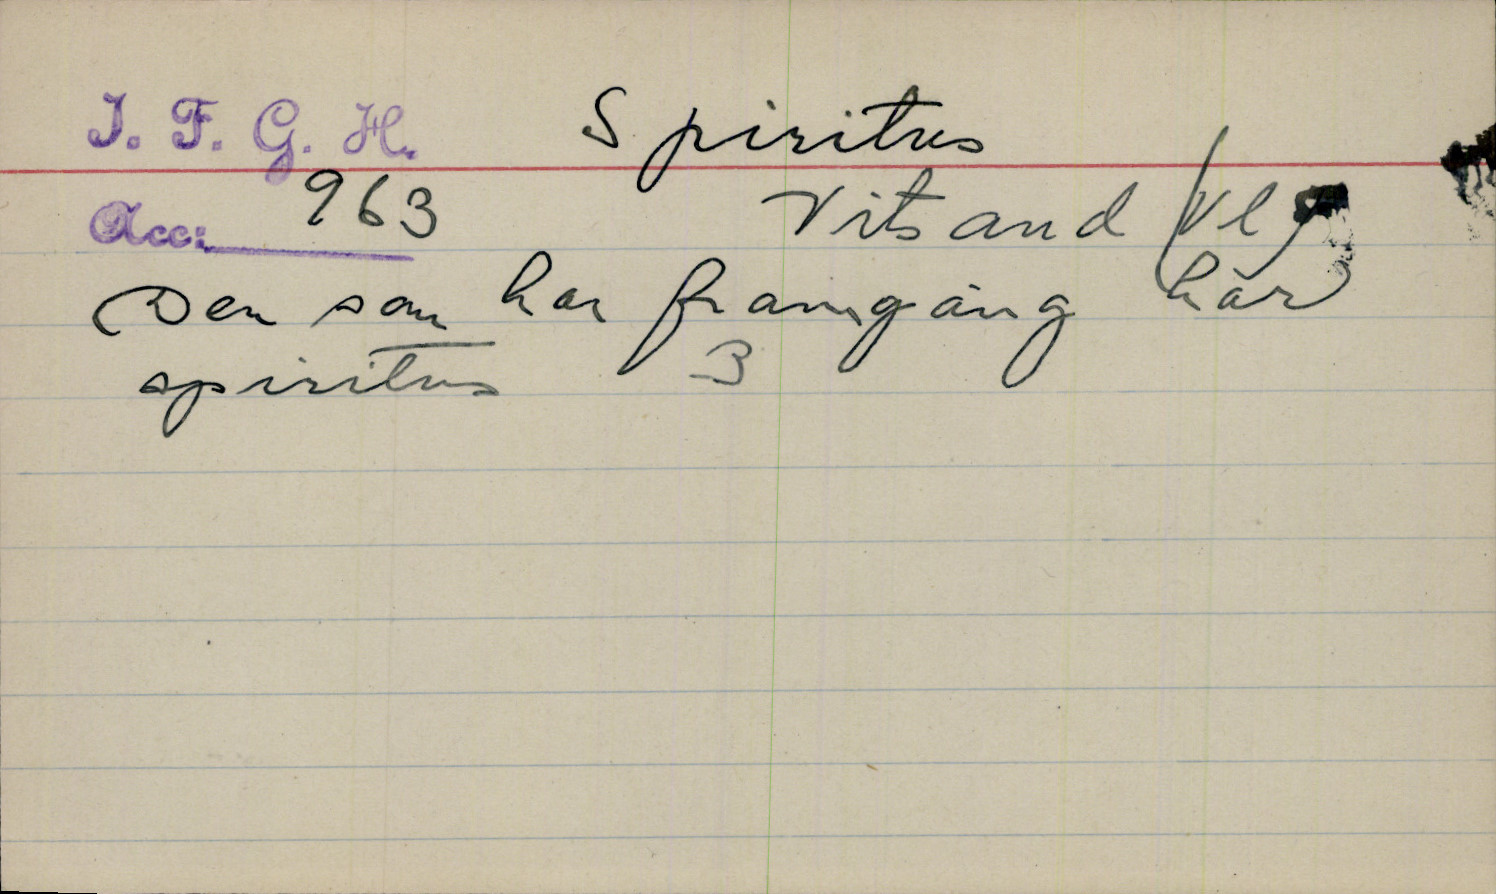 I. F. G. H. Spiritus
Acc: 963 Vitsand (Vl)
Den som har framgång har
spiritus 3